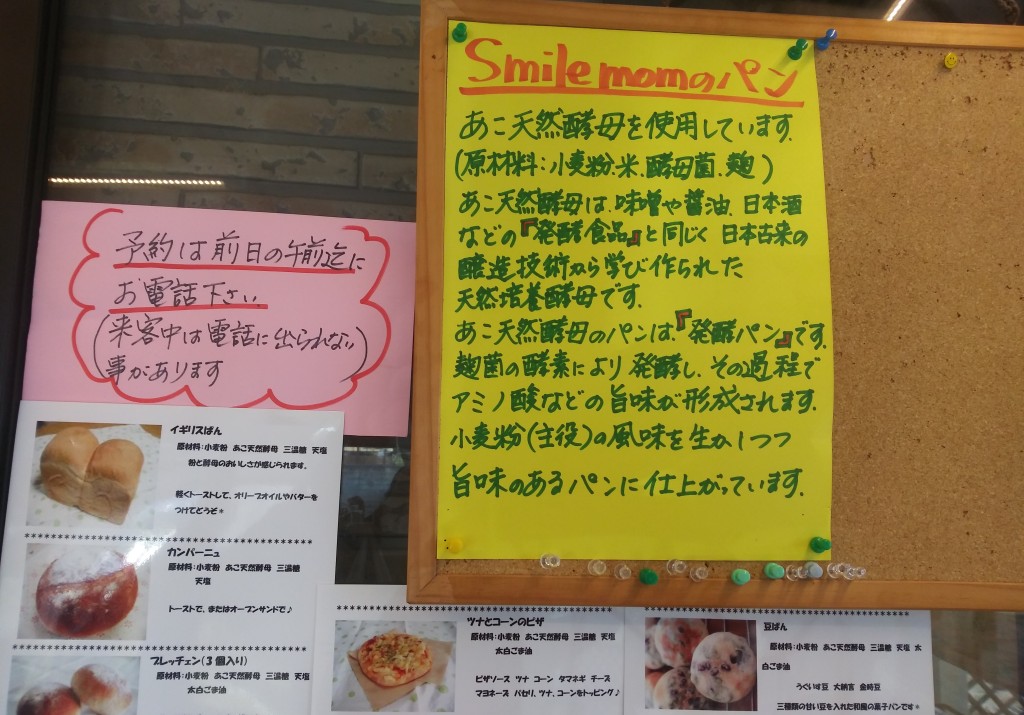 Smile momのパン
あこ天然酵母を使用しています.
(原材料:小麦粉.米.酵母菌.麹)
あこ天然酵母は.味噌や醤油.日本酒
などの『発酵食品』と同じく日本古来の
醸造技術から学び作られた
天然培養酵母です.
あこ天然酵母のパンは『発酵パン』です.
麹菌の酵素により発酵し.その過程で
アミノ酸などの旨味が形成されます.
小麦粉(主役)の風味を生かしつつ
旨味のあるパンに仕上がっています.
予約は前日の午前迄に
お電話下さい.
(来客中は電話に出られない)
事があります
イギリスぱん
原材料:小麦粉 あこ天然酵母 三温糖 天塩
粉と酵母のおいしさが感じられます。
軽くトーストして、オリーブオイルやバターを
つけてどうぞ*
************************************
カンパーニュ
原材料:小麦粉 あこ天然酵母 三温糖
天塩
トーストで、またはオープンサンドで♪
************************************
ブレッチェン(3個入り)
原材料:小麦粉 あこ天然酵母 三温糖 天塩
太白ごま油
************************************
ツナとコーンのピザ
原材料:小麦粉 あこ天然酵母 三温糖 天塩
太白ごま油
ピザソース ツナ コーン タマネギ チーズ
マヨネーズ パセリ、ツナ、コーンをトッピング♪
************************************
豆ぱん
原材料:小麦粉 あこ天然酵母 三温糖 天塩 太
白ごま油
うぐいす豆 大納言 金時豆
三種類の甘い豆を入れた和風の菓子パンです*